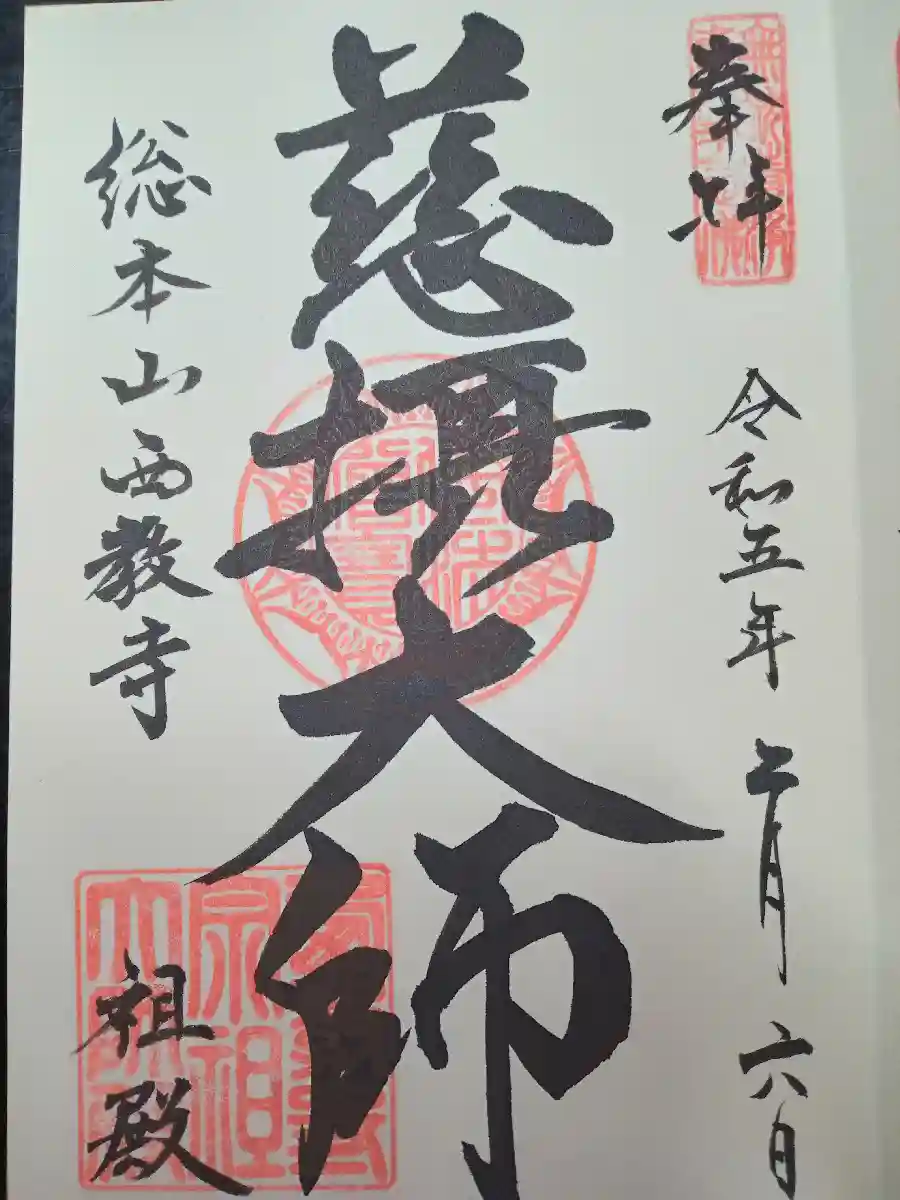 奉拝
令和五年 月六日
慈摂大師
総本山西教寺
祖殿
宗祖